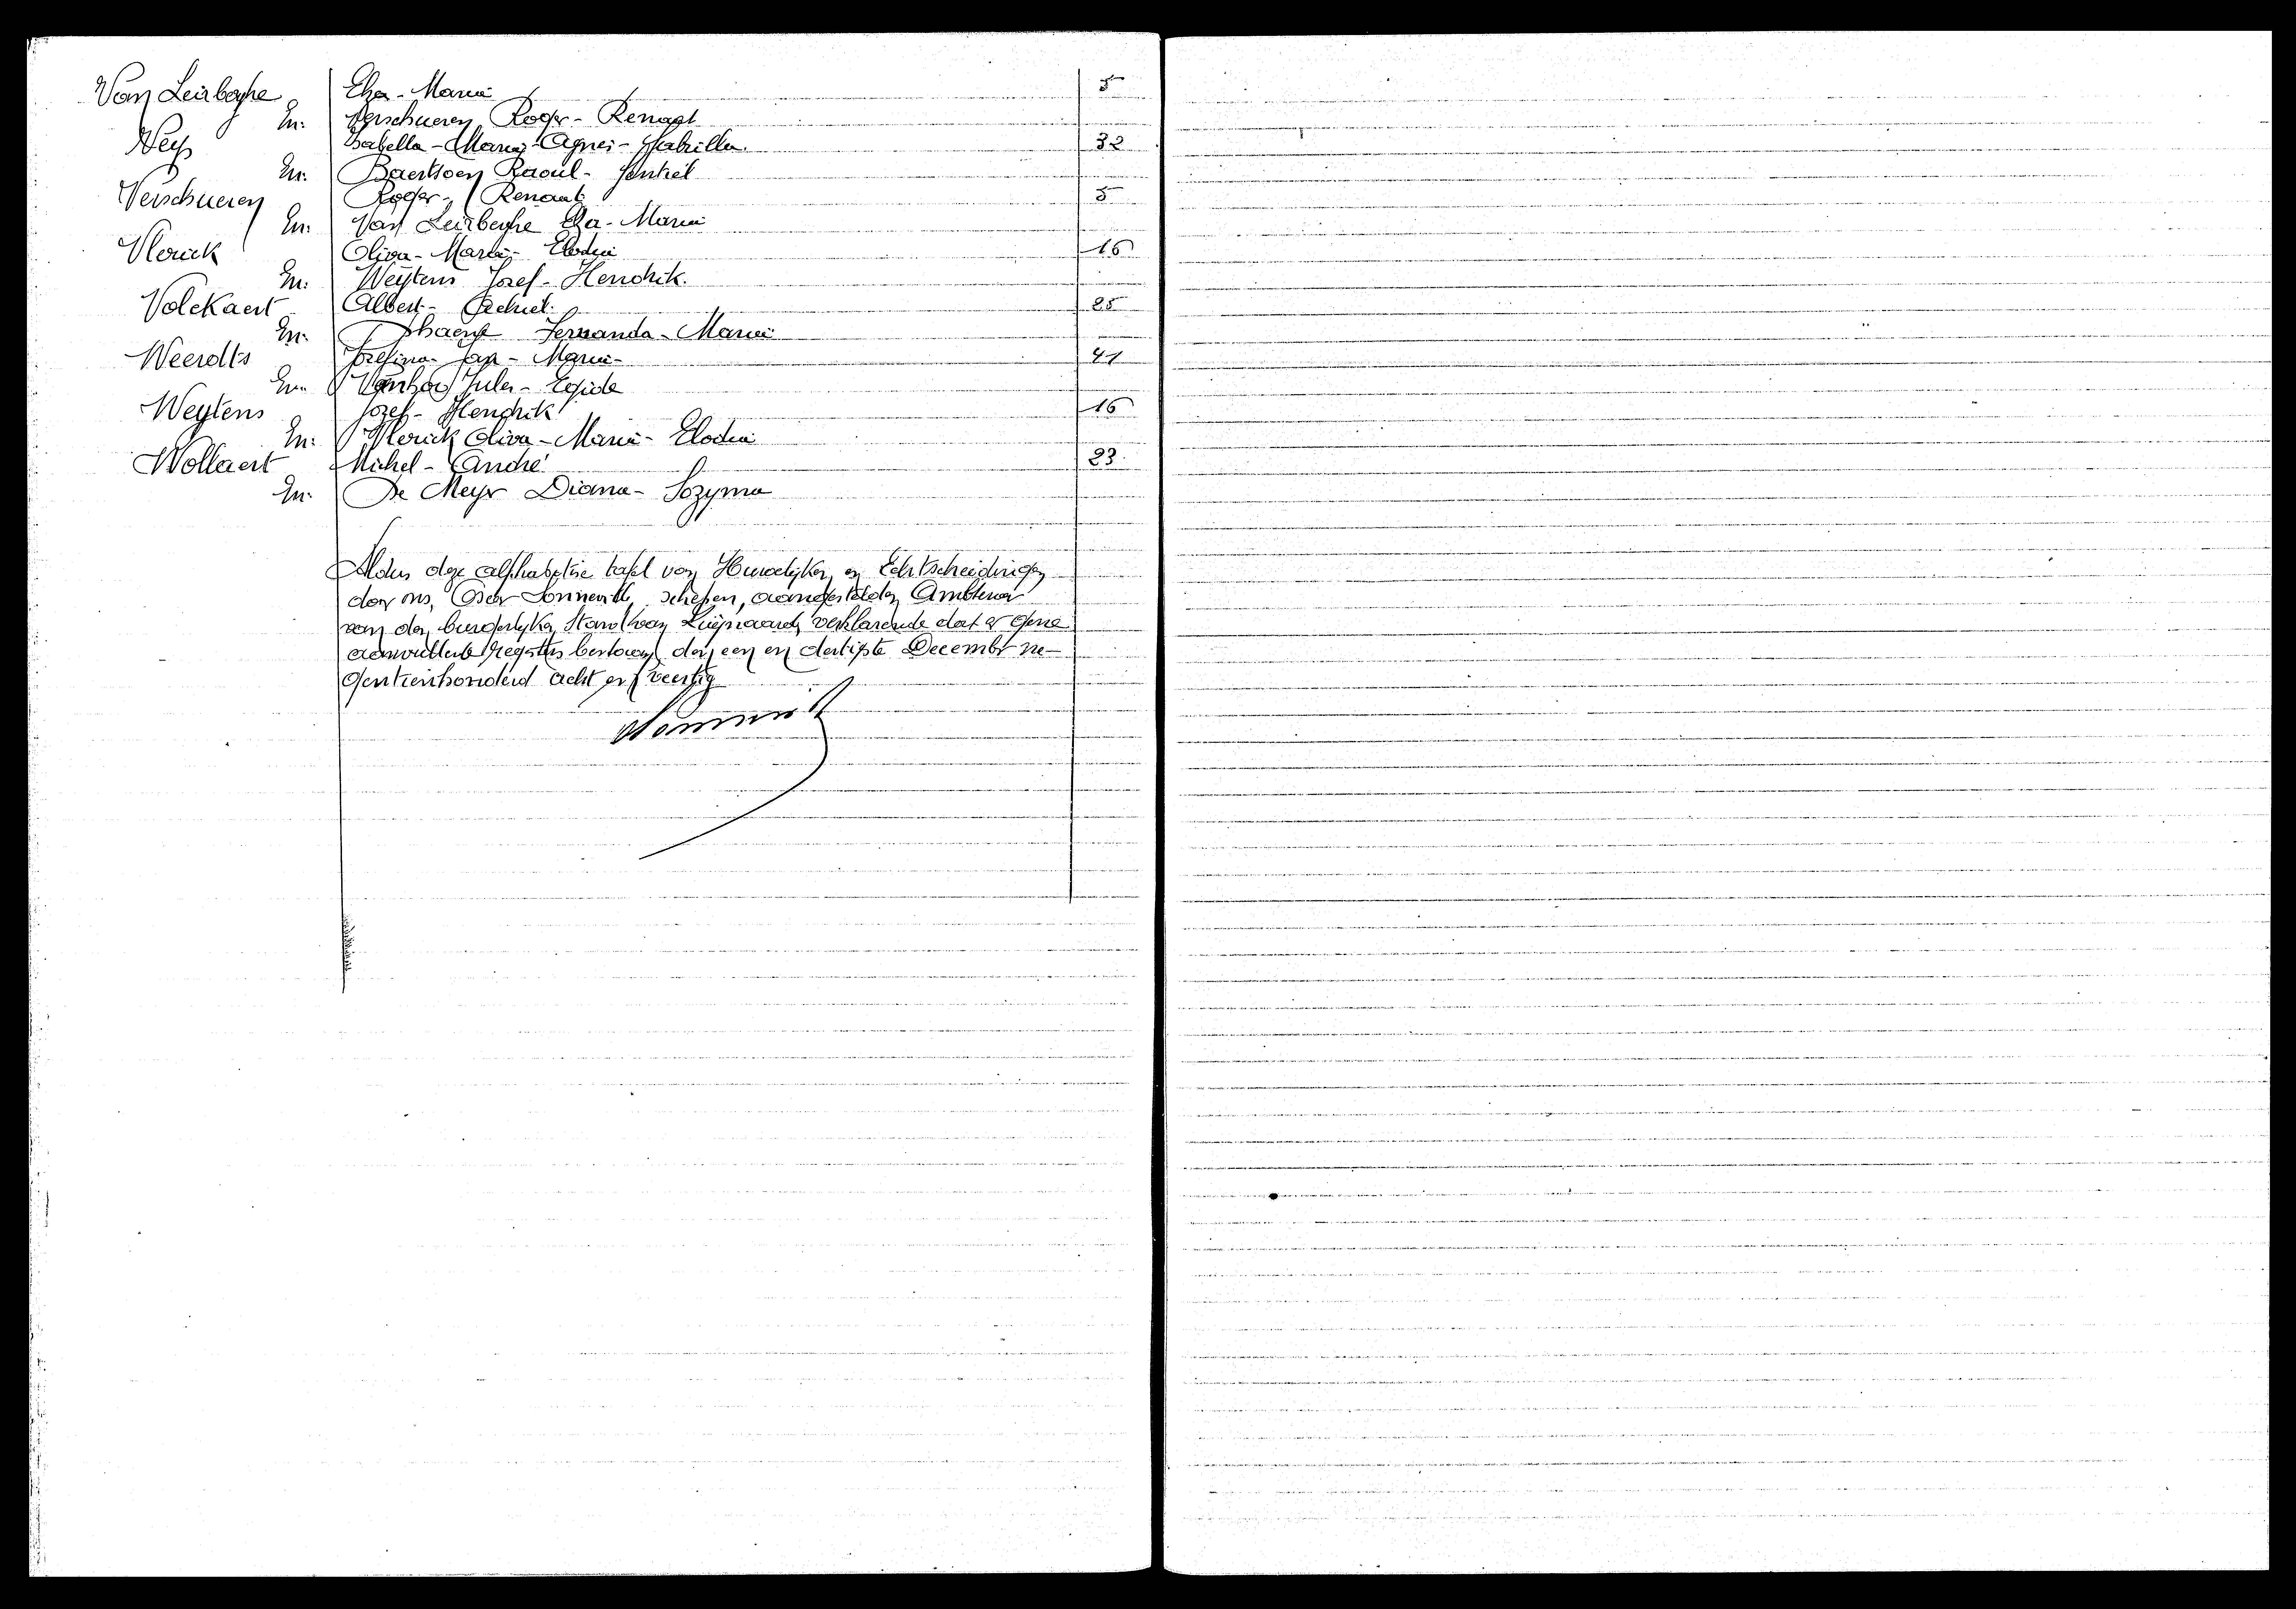 Van Leirberghe Elza - Maria 5
En: Verschueren Roger - Renaat
Neys Isabella - Maria - Agnes - Gabrilla 32
En: Baertsoen Raoul -
Verschueren Roger - Renaat 5
En: Van Leirberghe Elza - Maria
Vlerick Oliva - Maria - Elodia 16
En: Weytens Jozef - Hendrik.
Volckaert Albert - 25
En: Dhaenye Fernanda - Maria
Weerdts Jozefina - - Maria - 41
En: Vanhov Jules - Egide
Weytens Jozef - Hendrik 16
En: Vlerick Oliva - Maria - Elodia
Wollaert Michel - André 23
En: De Meyer Diana - Sozyma
Aldus deze alphabetise tafel van Huwelijken en Echtscheidingen
door ons, Oscar Sonneville, schepen, aangestelden Ambtenaar
van den burgerlyken Stand van verklarende dat er geene
aanvullende registers bestaan, den een en dertigste December ne-
gentienhonderd acht en veertig